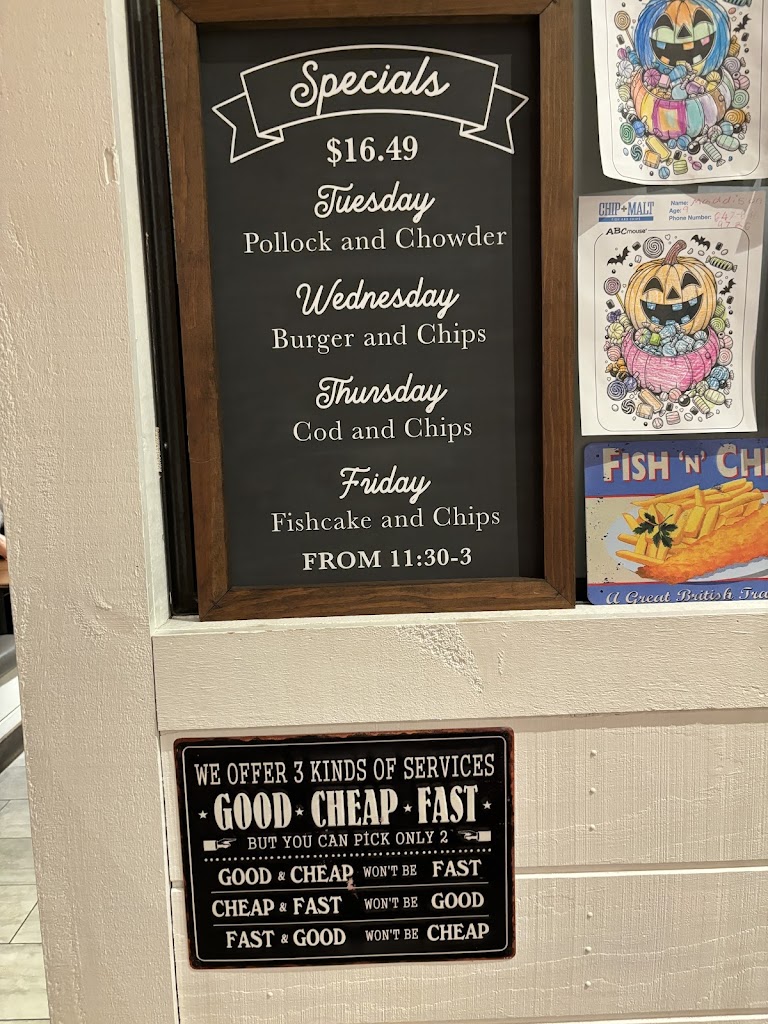 Specials
$16.49
Tuesday
Pollock and Chowder
Wednesday
Burger and Chips
Thursday
Cod and Chips
Friday
Fishcake and Chips
FROM 11:30-3
CHIP+MALT
FISH AND CHIPS
Name: Maddison
Age: 9
Phone Number:
ABCmouse
FISH 'N' CHI
A Great British Tra
WE OFFER 3 KINDS OF SERVICES
GOOD ★ CHEAP ★ FAST
BUT YOU CAN PICK ONLY 2
GOOD & CHEAP WON'T BE FAST
CHEAP & FAST WON'T BE GOOD
FAST & GOOD WON'T BE CHEAP